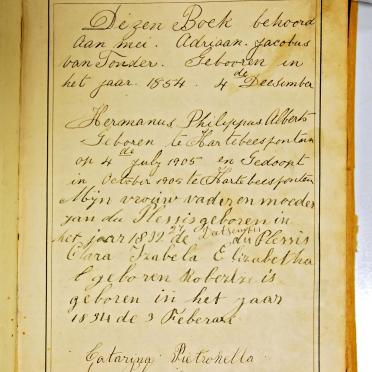 Dezen Boek behoord
aan mei. Adriaan. Jacobus
van Tonder. Gebooren in
het jaar. 1854. 4 de Deesember
Hermanus Philippus Alberts
Geboren te Hartebeesfontein
op 4 de july 1905 en Gedoopt
in October 1905 te Hartebeesfontein
Mijn vrouw vader on moeder
jan du Plessis geboren in
het jaar 1832 de 27 Datsember du Plessis
Clara Izabela Elizabetha
geboren Robertze is
geboren in het jaar
1834 de 3 Feberare
Catarina Pietronella